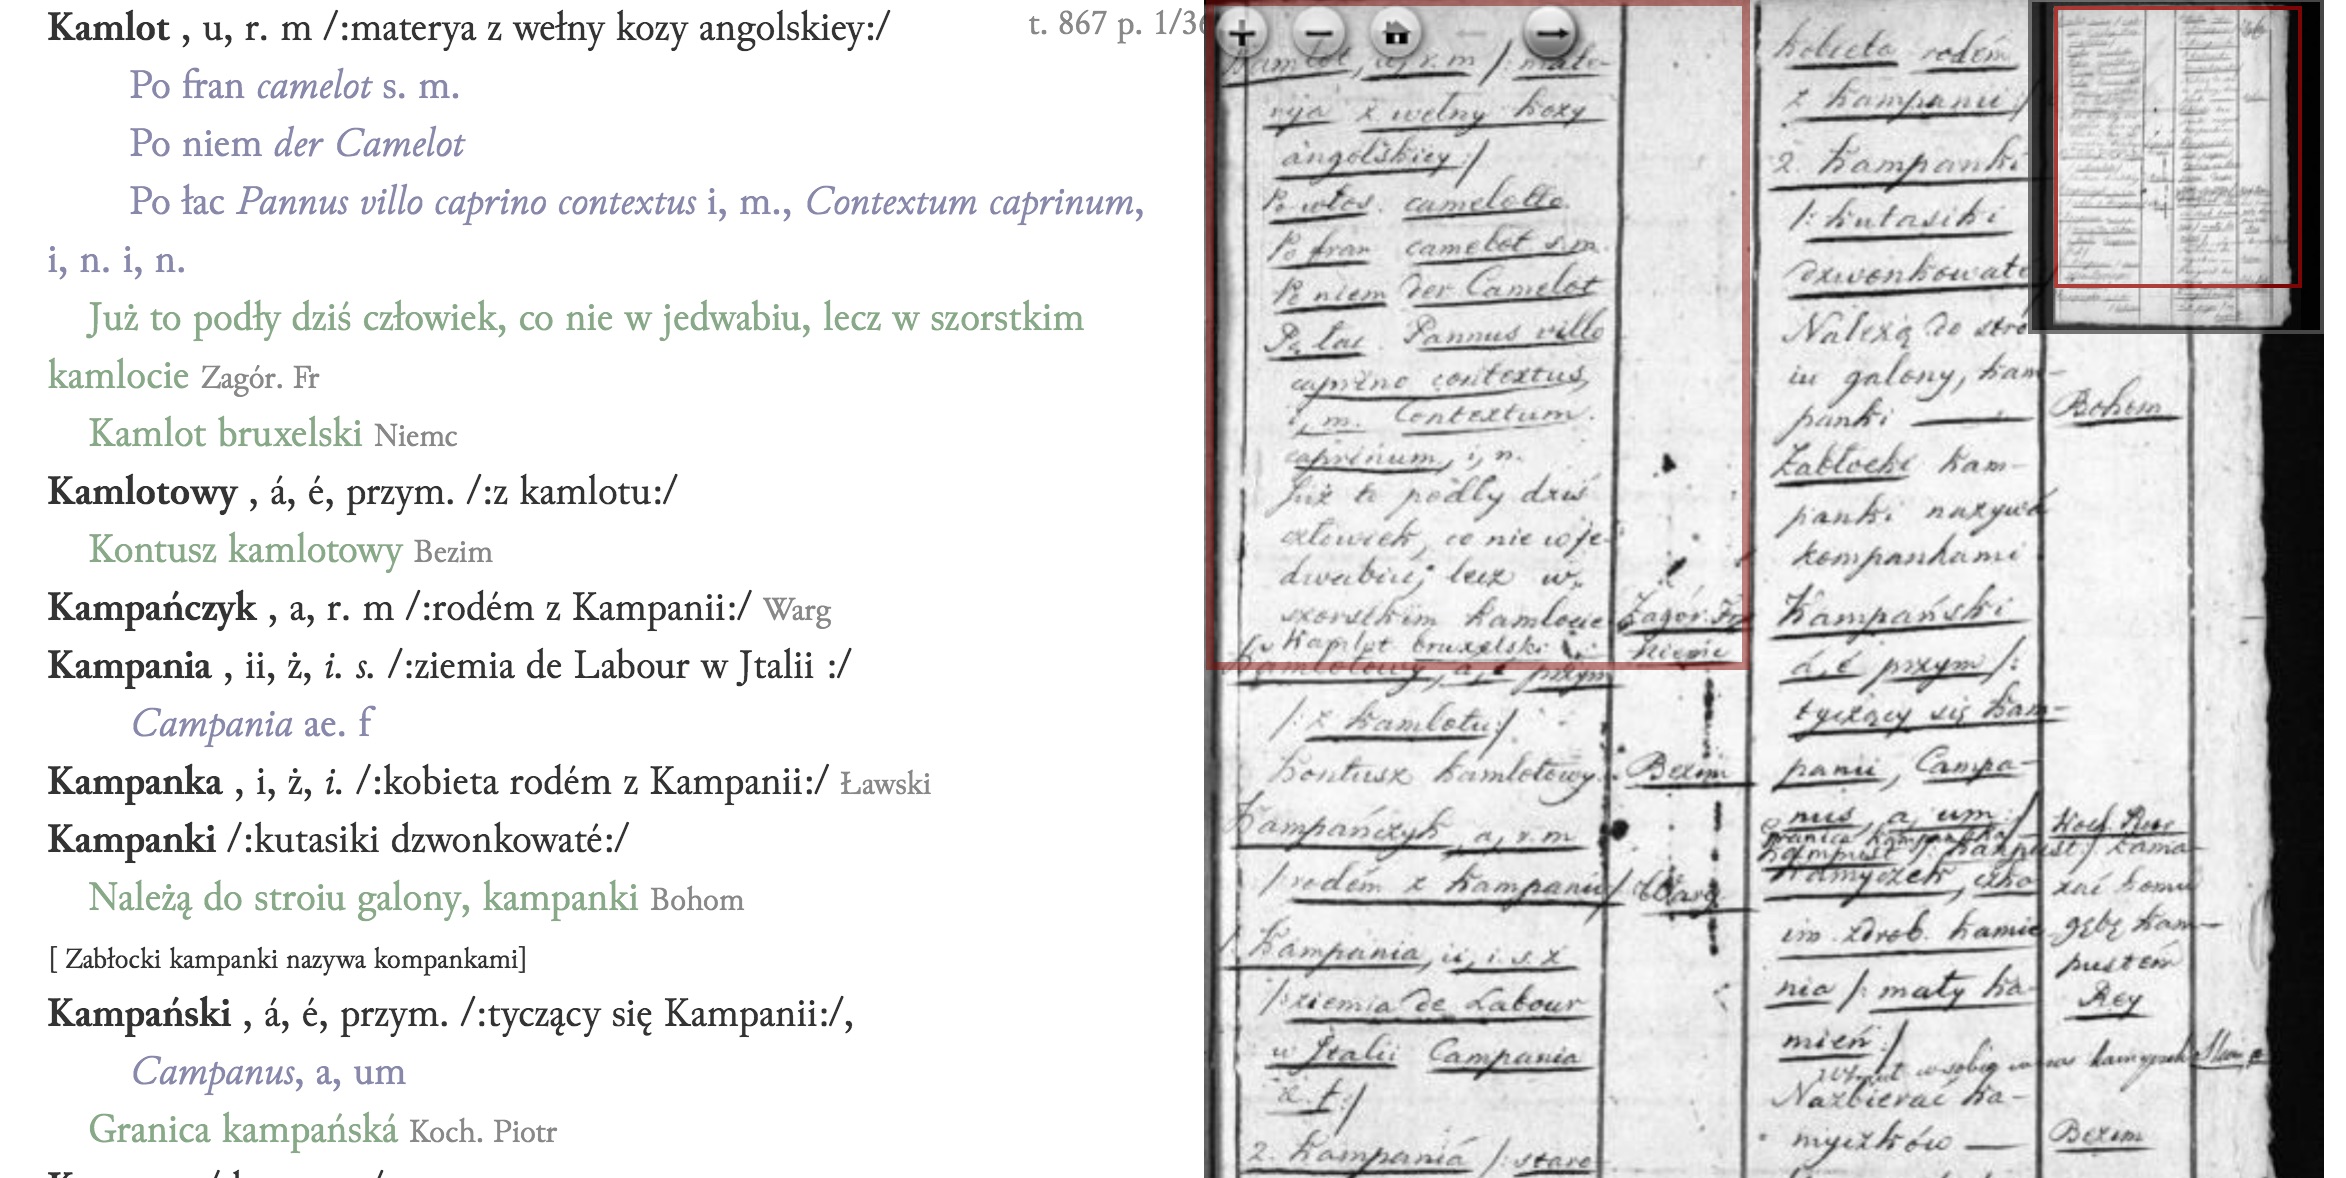 Kamlot , u, r. m /:materya z wełny kozy angolskiey:/
t. 867 p. 1/36
Po fran camelot s. m.
Po niem der Camelot
Po łac Pannus villo caprino contextus i, m., Contextum caprinum,
i, n. i, n.
Już to podły dziś człowiek, co nie w jedwabiu, lecz w szorstkim
kamlocie Zagór. Fr
Kamlot bruxelski Niemc
Kamlotowy , á, é, przym. /:z kamlotu:/
Kontusz kamlotowy Bezim
Kampańczyk , a, r. m /:rodém z Kampanii:/ Warg
Kampania , ii, ż, i. s. /:ziemia de Labour w Jtalii :/
Campania ae. f
Kampanka , i, ż, i. /:kobieta rodém z Kampanii:/ Ławski
Kampanki /:kutasiki dzwonkowaté:/
Należą do stroiu galony, kampanki Bohom
[ Zabłocki kampanki nazywa kompankami]
Kampański , á, é, przym. /:tyczący się Kampanii:/,
Campanus, a, um
Granica kampańská Koch. Piotr
Kamlot, u, r. m /: mate-
rija z wełny kozy
angolskiey:/
Po włos. camelotto
Po fran camelot s. m.
Po niem der Camelot
Po łac. Pannus villo
caprino contextus,
i, m. Contextum.
caprinum, i, n.
Już to podły dziś
człowiek, co nie w je-
dwabiu, lecz w.
szorstkim kamlocie Zagór. Fr
Kamlot bruxelski Niemc
Kamlotowy, a, é przym
/: z kamlotu:/
Kontusz kamlotowy. Bezim
Kampańczyk, a, r. m
/rodém z Kampanii/ Warg
1. Kampania, ii, i. s. ż
/ziemia de Labour
w Jtalii Campania
æ. f:/
2. Kampaniá /: stare-
kobieta rodém
z Kampanii/
2. Kampanki
/: kutasiki
dzwonkowaté
Należą do stro
iu galony, kam-
panki Bohom
Zabłocki kam-
panki nazywá
kompankami
Kampański
á, é przym /:
tyczący się Kam-
panii, Campa-
nus, a, um:/
Granica kampańská Koch. Piotr
Kampust /: kanpust/ zama-
Kamyczek, czka zać komu
im. zdrob. kamie gębę kam-
nia /: mały ka- pustém
mień:/ Rey
Nazbierać ka-
myczków Bezim